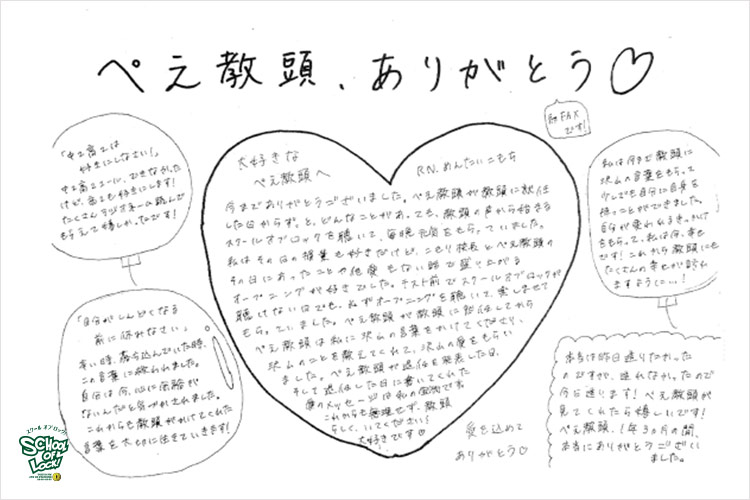 ぺえ教頭、ありがとう♡
初FAX
です!
「中2高2は
好きにしなさい!」
けど、高2も好きにします!
たくさんラジオネームを読んで
もらえて嬉しかったです!
大好きな
ぺえ教頭へ
R.N. めんたいこもち
今までありがとうございました。ぺえ教頭が教頭に就任
した日からずっと、どんなことがあっても、教頭の声から始まる
スクールオブロックを聴いて、毎晩元気をもらっていました。
私はその日の授業も好きだけど、こもり校長とぺえ教頭の
その日にあったことや他愛もない話で盛り上がる
オープニングが好きでした。テスト前でスクールオブロックが
聴けない日でも、必ずオープニングを聴いて、楽しませて
もらっていました。ぺえ教頭が教頭に就任してから
ぺえ教頭は私に沢山の言葉をかけてくださり、
沢山のことを教えてくれて、沢山の愛をもらい
ました。ぺえ教頭が退任を発表した日、
そして退任した日に書いてくれた
愛のメッセージは私の宝物です
これからも無理せず、教頭
らしく、いてください!
大好きです♡
愛を込めて
ありがとう♡
私は今まで教頭に
沢山の言葉をもらって
少しでも自分に自身を
持つことができました。
自分が変われるきっかけ
をもらって、私は今、幸せ
です!これから教頭にも
たくさんの幸せが訪れ
ますように…!
「自分がしんどくなる
前に休みなさい」
辛い時、落ち込んでいた時、
この言葉に救われました。
自分は今、心に余裕が
ないんだと気づかされました。
これからも教頭がかけてくれた
言葉を大切に生きていきます!
本当は昨日送りたかった
のですが、送れなかったので
今日送ります!ぺえ教頭が
見てくれたら嬉しいです!
ぺえ教頭、1年3ヵ月の間、
本当にありがとうござい
ました。
スクールオブロック!
SCHOOL
OF
LOCK!